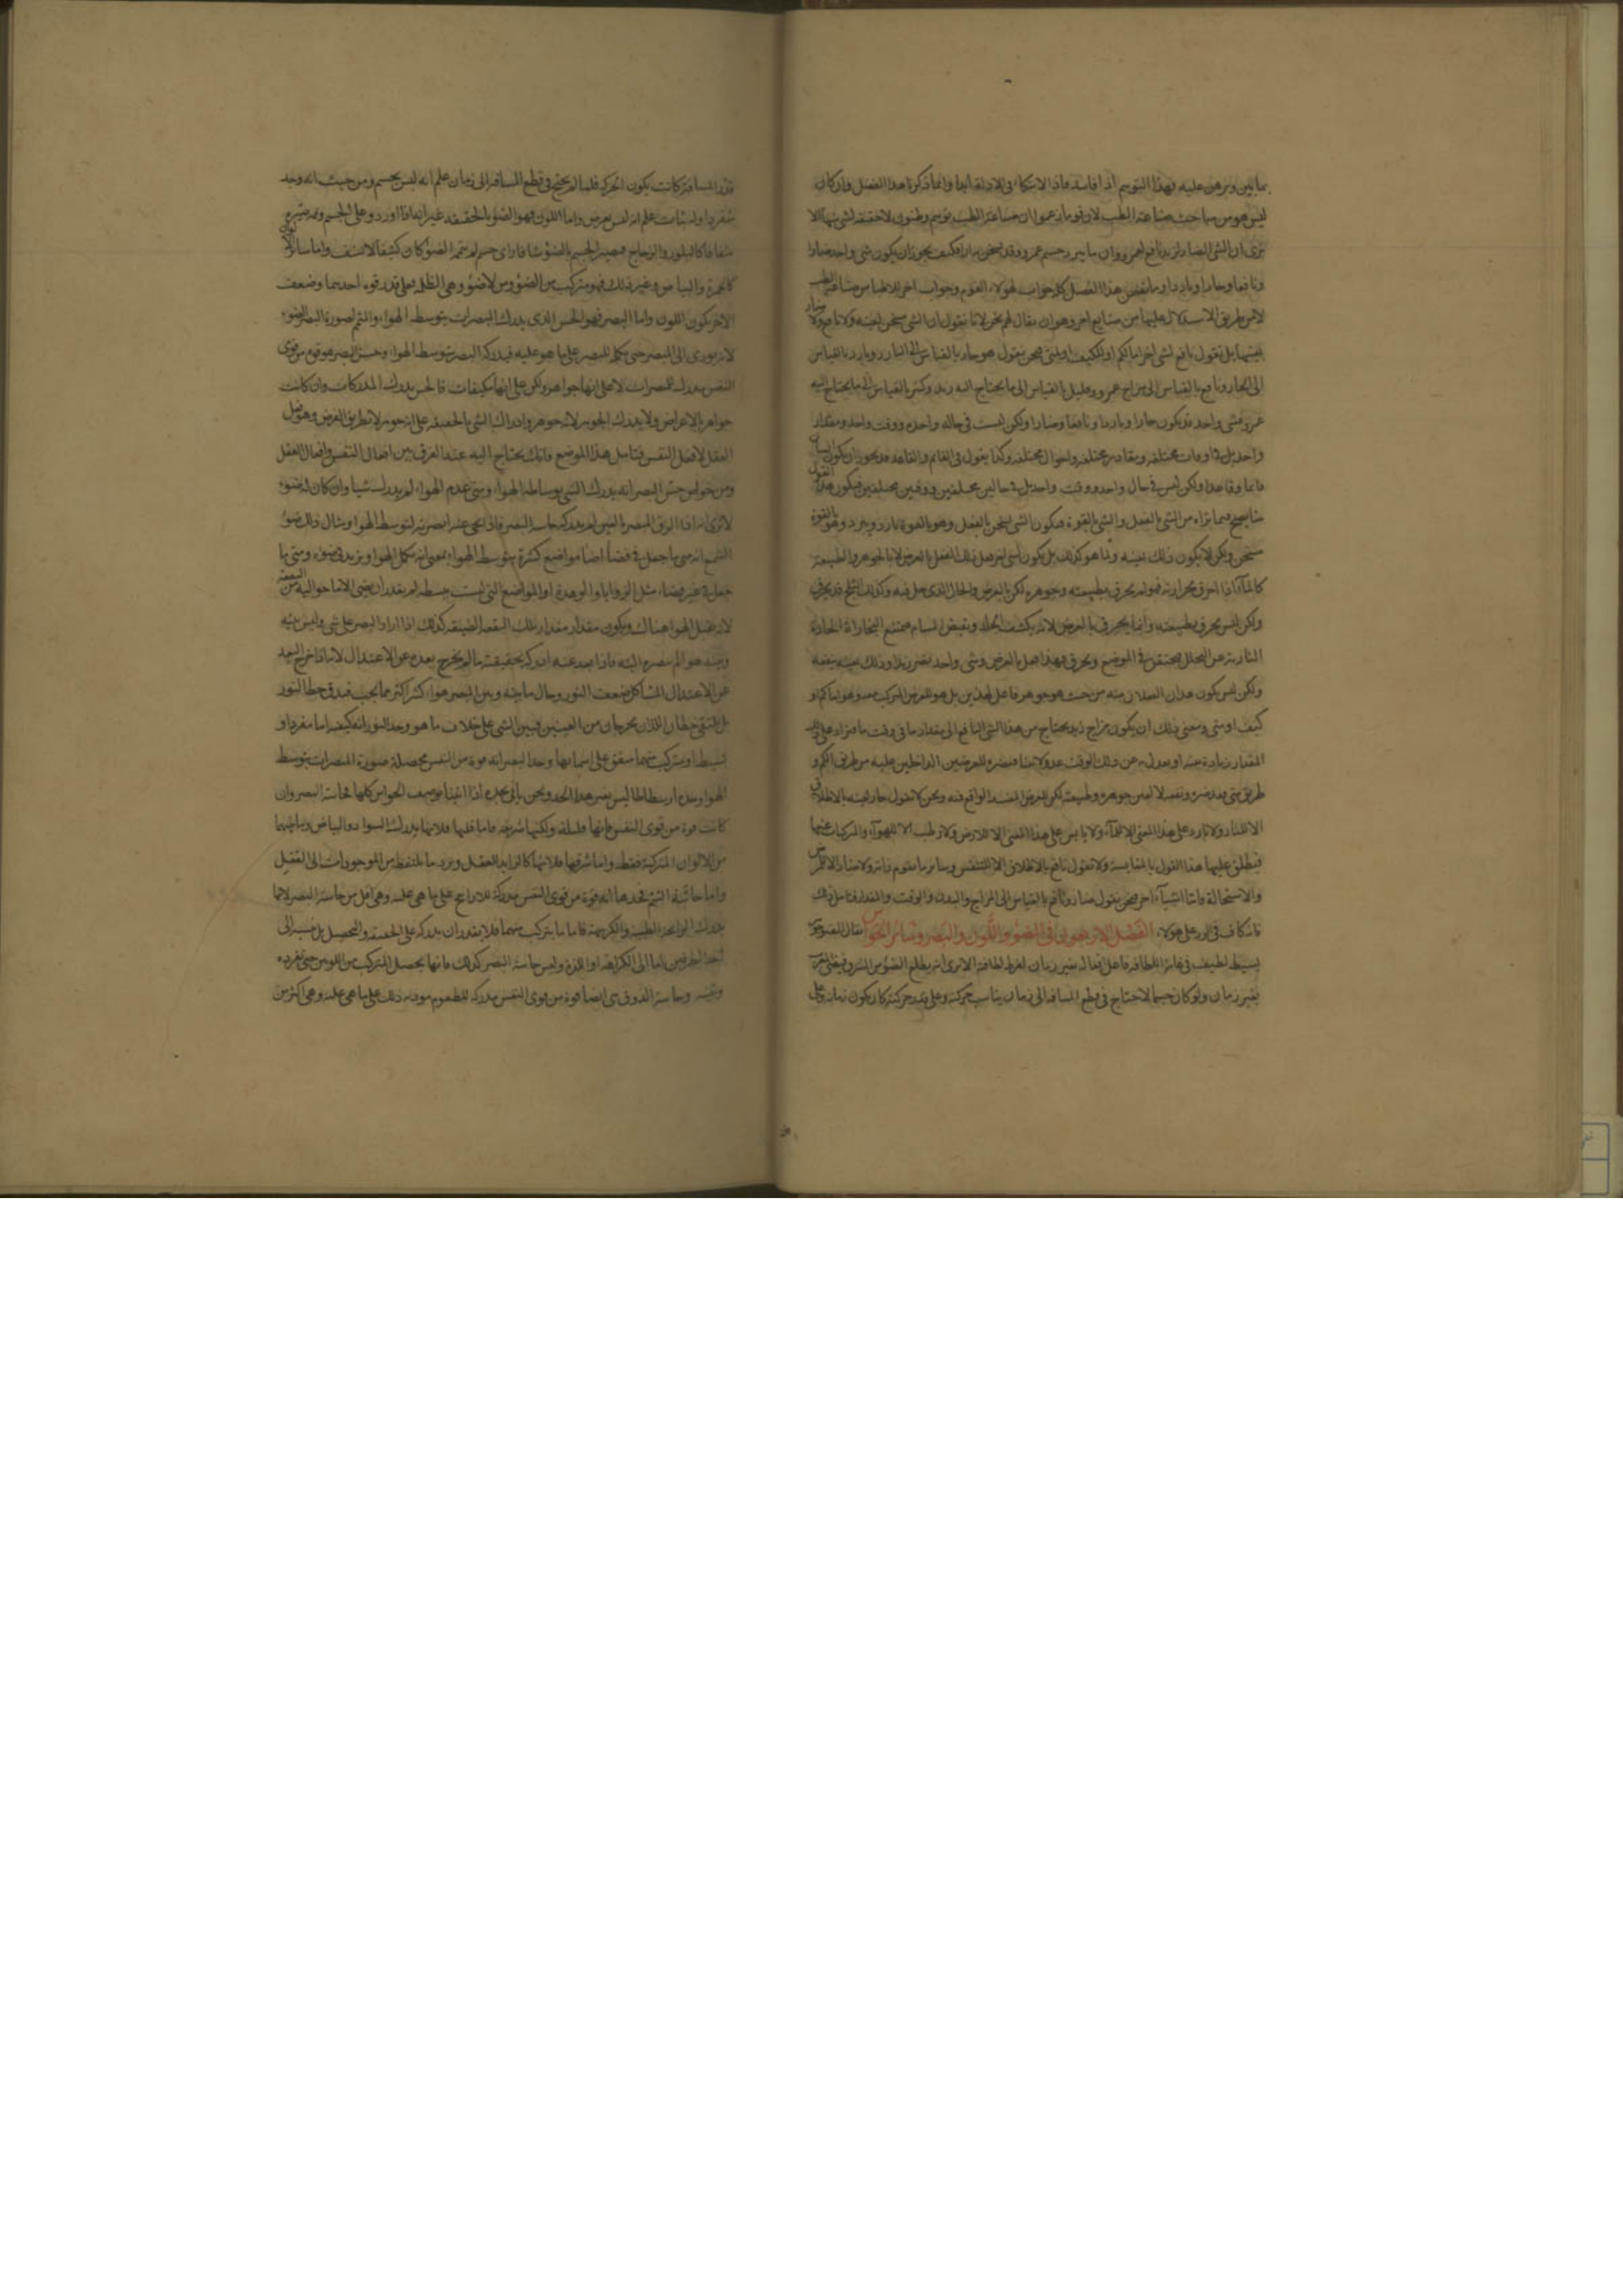 ما بين وبرهن عليه فهذا التوسم اذا فاسد فاذ الاتكا في الادلة ايها وانما ذكرنا هذا الفصل وان كان
ليس هو من مباحث صناعة الطب لان قوما زعموا ان صناعة الطب توسم وظنون لا حقيقة لشي منها الا
ترى ان الشي الضار لزيد نافع لعمرو وان ما يبرد جسم عمرو وقد يسخن فكيف يجوز ان يكون شي واحد ضارا
ونافعا وحارا وباردا وما تضمن هذا الفصل كله جواب لهولاء القوم وجواب اخر للاطبا من صناعة الطب
لا من طريق الاستدلال عليها من صنايع اخر وهو ان يقال لهم نحن لانا نقول ان الشي مسخن لعينه ولا نافع ولا ضار
بعينها بل نقول نافع لشي اخر اما لكم او لكيف او لمتى فنحن نقول هو حار بالقياس الى البارد وبارد بالقياس
الى الحار ونافع بالقياس الى مزاج عمرو وقليل بالقياس الى ما يحتاج اليه زيد وكثير بالقياس الى ما يحتاج اليه
عمرو فشي واحد قد يكون حارا وباردا ونافعا وضارا ولكن ليست في حاله واحده ووقت واحد ومقدار
واحد بل في اوقات مختلفه ومقادير مختلفه واحوال مختلفه وكذا نقول في القائم والقاعد قد يجوز ان يكون انسان
قائما وقاعدا ولكن ليس في حال واحد ووقت واحد بل في حالين مختلفين ووقتين مختلفين فيكون هذا القول
صحيح من الشي بالفعل والشي بالقوة فيكون الشي يسخن بالفعل وهو بالقوة بارد ويبرد وهو بالقوة
مسخن ولكن لا يكون ذلك بعينه بل يكون الشي يفعل ذلك الفعل بالعرض لا بالجوهر والطبيعة
كالماء اذا احرق بحرارته فهو لم يحرق بطبيعته وجوهره لكن بالعرض والحار الذي حل فيه وكذلك الثلج قد يحرق
ولكن ليس يحرق بطبيعته وانما يحرق بالعرض لانه يكشف الجلد ويقبض المسام فيمتنع البخارات الحادة
النارية عن التحلل فيحتقن في الموضع ويحرق فهذا فعل بالعرض وشي واحد يضر زيدا وذلك بعينه ينفعه
ولكن ليس يكون هذان الفعلان منه من حيث هو جوهر فاعل لهذين بل هو للعرض المركب معه وهو اما كم او
كيف او متى ومعنى ذلك ان يكون مزاج زيد يحتاج من هذا الشي النافع الى مقدار ما في وقت ما فيزاد على ذلك
المقدار زيادة منه او يعدل به عن ذلك الوقت فيضره للعرضين الداخلين عليه من طريق الكم و
طريق متى فقد ضره ونفعه لا لعين جوهره وطبيعته لكن للعرض الواقع فيه ونحن لا نقول حار لعينه بالاطلاق
الا للنار ولا بارد على هذا المعنى الا للماء ولا يابس على هذا المعنى الا للارض ولا رطب الا للهوآء والمركبات عنها
فيطلق عليها هذا القول بالمقايسة ولا نقول نافع بالاطلاق الا للتنفس وساير ما يقوم ذاته ولا ضار الا للمرض
والاستحالة واما اشيآء اخر فنحن نقول ضار ونافع بالقياس الى المزاج والبدن والوقت والمقدار فتامل ذلك
فانه كاف في الرد على هولاء الفصل الاربعون في الضوء واللون والبصر وسائر الحواس نقال الضوء هو
بسيط لطيف في غاية اللطافه فاعل افعاله بغير زمان لفرط لطافته الا ترى انه يطلع الضوء من الشرق فيضي الغرب
بغير زمان ولو كان جسما لاحتاج في قطع المسافه الى زمان يناسب حركته وعلى قدر حركته كان يكون زمانه وعلى
قدر المسافة كانت يكون الحركه فلما لم يحتج في قطع المسافه الى زمان علم انه ليس بجسم ومن حيث انه وجد
مفردا وله ثبات علم انه ليس بعرض واما اللون فهو الضوء بالحقيقه غير انه اذا ورد على الجسم وممره صيره
شفافا كالبلور والزجاج فيصير الجسم بالضوء شفافا واي جسم لم يتممه الضوء كان كثيفا لا يشف واما ساير الالوان
كالحمرة والبياض وغير ذلك فهو متركب من الضوء ومن لا ضوء وهي الظلمه فعلى قدر قوه احدهما وضعف
الاخر يكون اللون واما البصر فهو الحس الذي يدرك المبصرات بتوسط الهواء والمتمم لصورة البصر الضوء
لانه يودى الى البصر حتى يكمل المبصر على ما هو عليه فيدركه البصر بتوسط الهواء وحس البصر هو قوه من قوى
النفس يدرك المبصرات لا على انها جواهر ولكن على انها مكيفات فالحس يدرك المدركات وان كانت
جواهر بالاعراض ولا يدرك الجوهر لانه جوهر وادراك الشي بالحقيقه على انه جوهر لا بطريق العرض وهو فعل
العقل لا فعل النفس فتامل هذا الموضع فانك تحتاج اليه عند الفرق بين افعال النفس وافعال العقل
ومن خواص حس البصر انه يدرك الشي بوساطه الهواء ومتى عدم الهواء لم يدرك شيا وان كان له ضوء
لا ترى انه اذا الزق المبصر بالعين لم يدركه حاسه البصر فاذا نحي عنه ابصرته لتوسط الهواء ومثال ذلك ضوء
الشمع انه متى ما جعل في فضاء اضاء مواضع كثيرة بتوسط الهواء بمعنى انه مكمل الهواء ويزيد في ضوءه ومتى ما
جعل في غير فضاء مثل الزوايا والوهدة او المواضع التي ليست مبسطه لم يقدر ان يضي الا ما حواليه من البقعة
لانه يقبل الهواء هناك ويكون مقدار مقدار تلك البقعه الضيقه كذلك اذا اراد البصر على شي وليس بينه
وبينه هواء لم يبصره البته فاذا بعد عنه ادركه بحقيقته ما لم يخرج بعده عن الاعتدال لانه اذا خرج البعد
عن الاعتدال المشاكل ضعف النور وحال ما بينه وبين البصر هواء كثير اكثر مما يجب فيدق خطا النور
بل يلتقي خطان اللذان يخرجان من العينين فيبين الشي على خلاف ما هو وحد النور انه كيفيه اما مفرد او
بسيط او متركب منهما متفق على اسمائهما وحد البصر انه قوة من النفس محصلة صورة المبصرات بتوسط
الهواء وحده ارسطاطاليس بغير هذا الحد ونحن ناتي بحده اذا اتينا بوصف الحواس كلها فحاسة البصر وان
كانت قوة من قوى النفس فانها قليلة ولكنها شريفه فاما قلتها فلانها يدرك السواد والبياض وما بينهما
من الالوان المتركبة فقط واما شرفها فلانها كالرايد للعقل وبريد ما يلتقطه من الموجودات الى العقل
واما حاسة الشم فحدها انه قوة من قوى النفس مدركة للاراييح على ما هي عليه وهي اقل من حاسة البصر لانها
يدرك الرايحة الطيبه والكريهه فاما ما يتركب منهما فلا يقدر ان يدركه على الحقيقه والتحصيل بل ينسبه الى
احد الطرفين اما الى الكراهه او اللذه وليس حاسة البصر كذلك فانها يحصل المتركب من اللونين حتى تفرده
وتبينه وحاسة الذوق هي ايضا قوة من قوى النفس مدركه للطعوم موديه ذلك على ما هي عليه وهي اكثر من